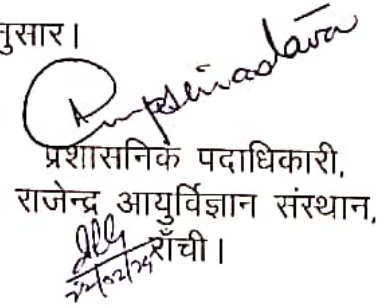 नुसार।
प्रशासनिक पदाधिकारी,
राजेन्द्र आयुर्विज्ञान संस्थान,
राँची।